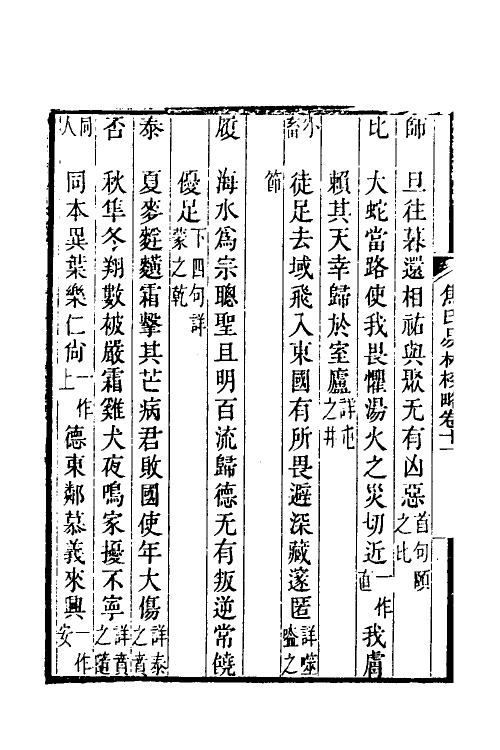 焦氏易林校略卷十一
師　旦往暮還相祐與聚无有凶惡首句頤之比
比　大蛇當路使我畏懼湯火之災切近一作直我膚
賴其天幸歸於室廬詳屯之井
小畜　徒足去域飛入東國有所畏避深藏邃匿詳噬嗑之
節
履　海水爲宗聰聖且明百流歸德无有叛逆常饒
優足下四句詳蒙之乾
泰　夏麥䴢䵃霜擊其芒病君敗國使年大傷詳泰之賁
否　秋隼冬翔數被嚴霜雞犬夜鳴家擾不寧詳賁之隨
同人　同本異葉樂仁尙一作上德東鄰慕義來興一作安